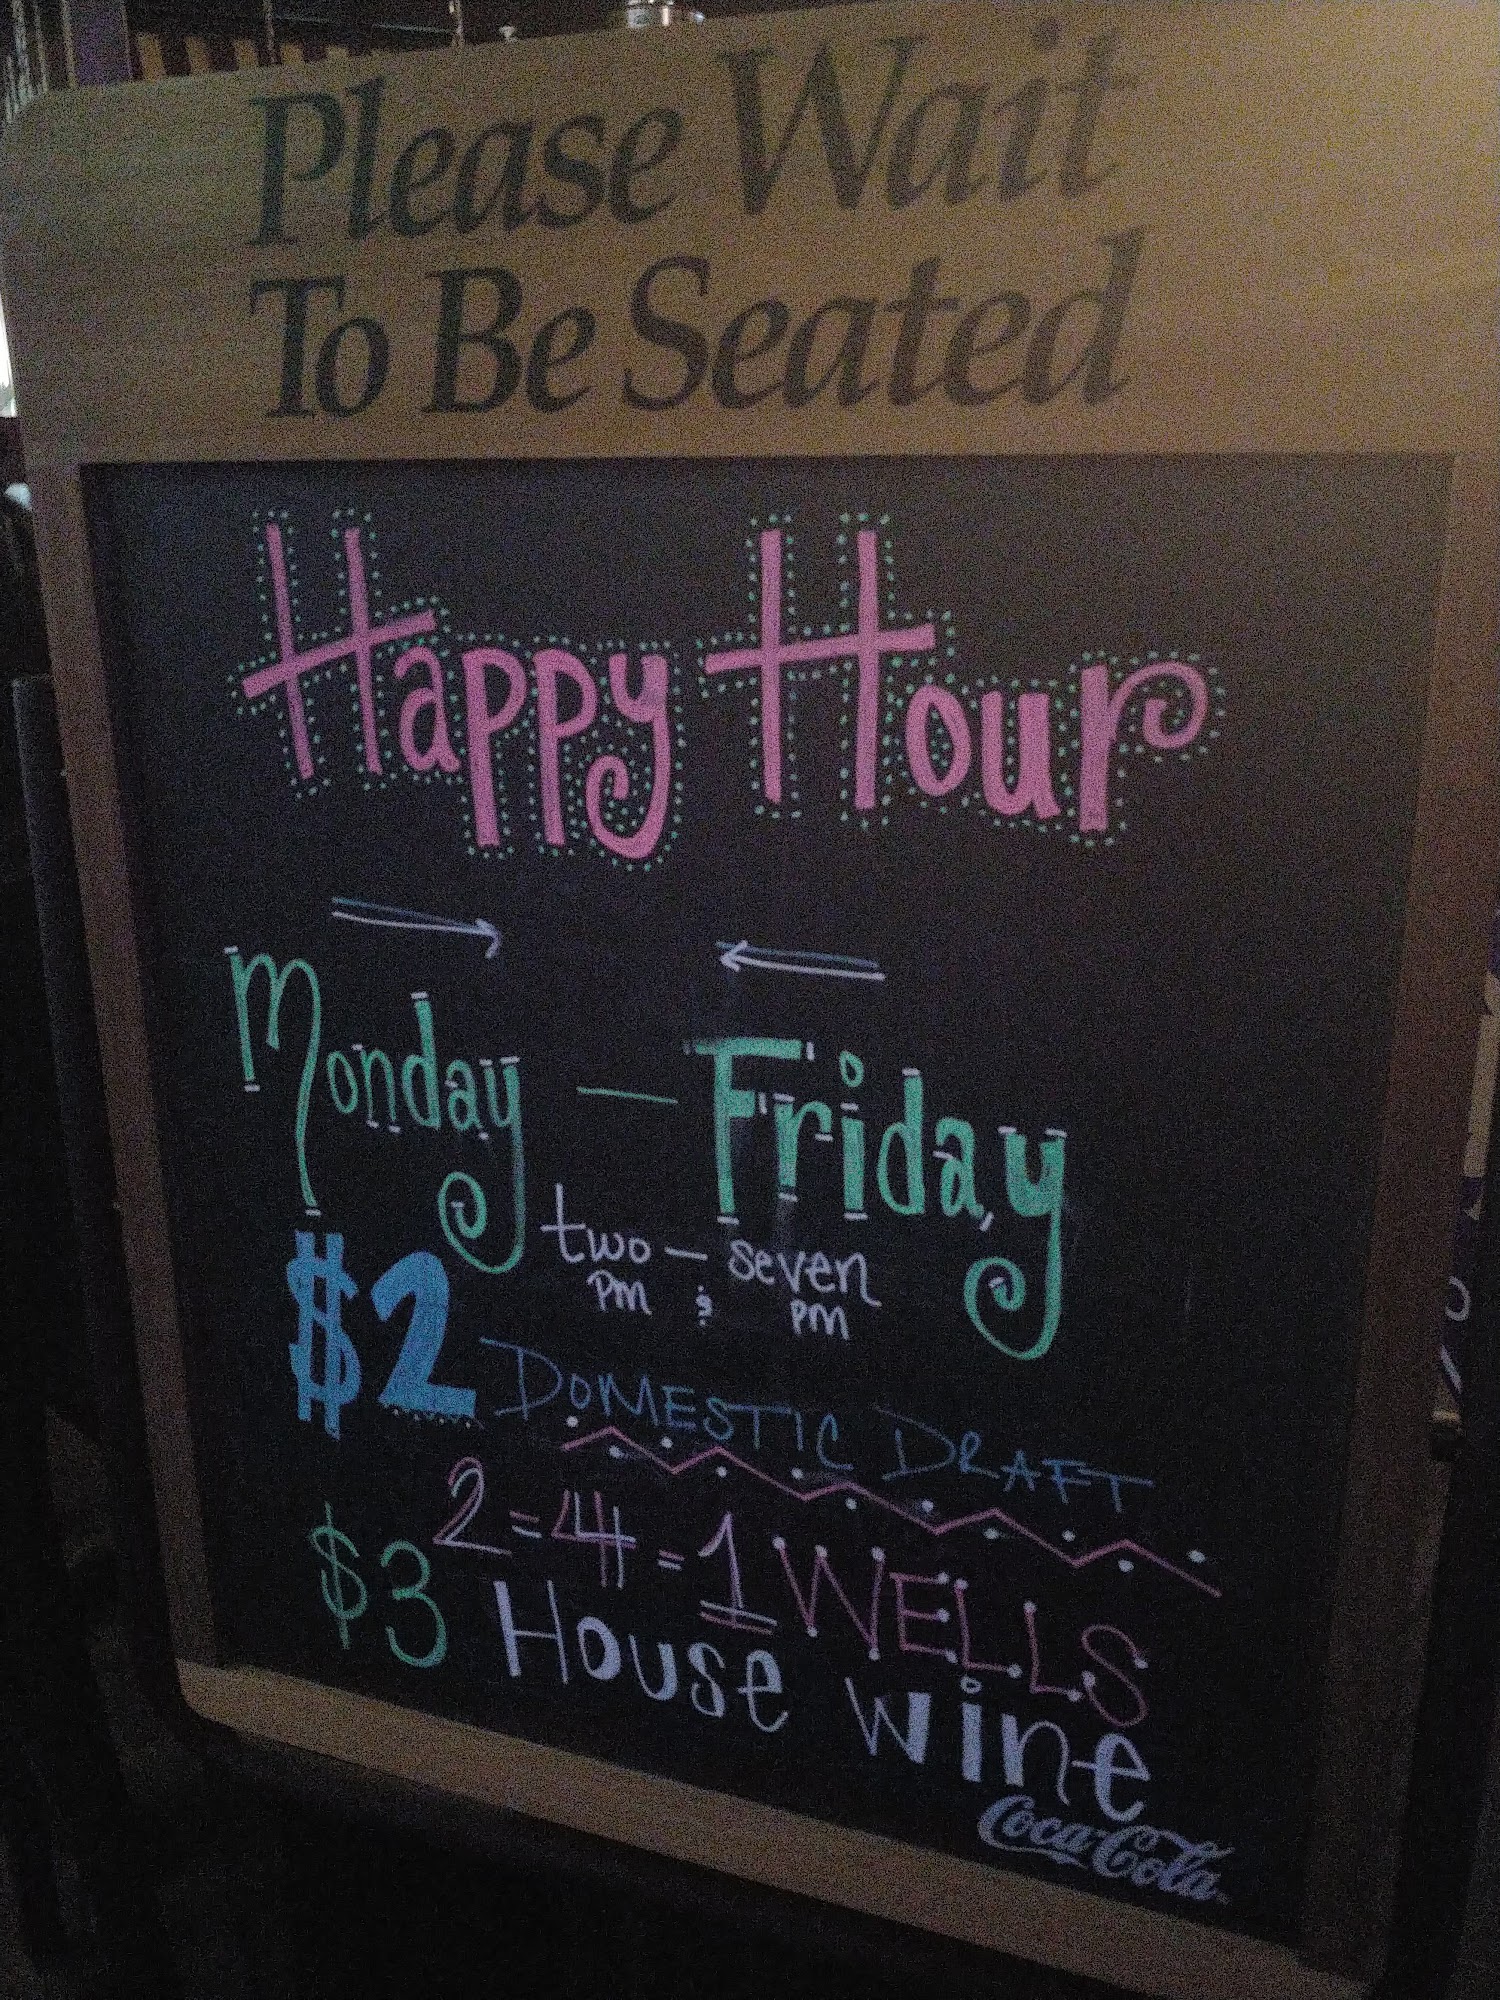 Please Wait
To Be Seated
Happy Hour
Monday — Friday
two — seven
PM & PM
$2 DOMESTIC DRAFT
2=4=1 WELLS
$3 House wine
Coca-Cola